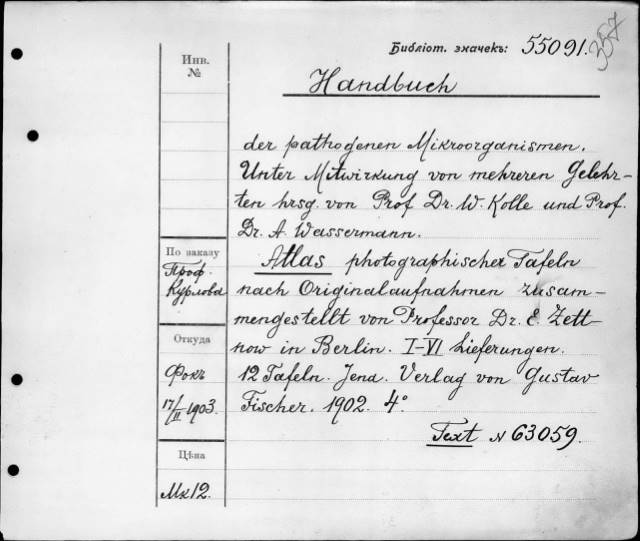 Библіот. значекъ: 55091.
357
Инв.
№
Handbuch
der pathogenen Mikroorganismen.
Unter Mitwirkung von mehreren Gelehr-
ten hrsg. von Prof Dr. W. Kolle und Prof.
Dr. A. Wassermann.
По заказу
Проф.
Курлова
Atlas photographischer Tafeln
nach Originalaufnahmen zusam-
mengestellt von Professor Dr. E. Zett-
now in Berlin. I-VI Lieferungen.
12 Tafeln. Jena. Verlag von Gustav
Fischer. 1902. 4°
Откуда
Фокъ
17/II 1903.
Text № 63059.
Цѣна
Мк 12.